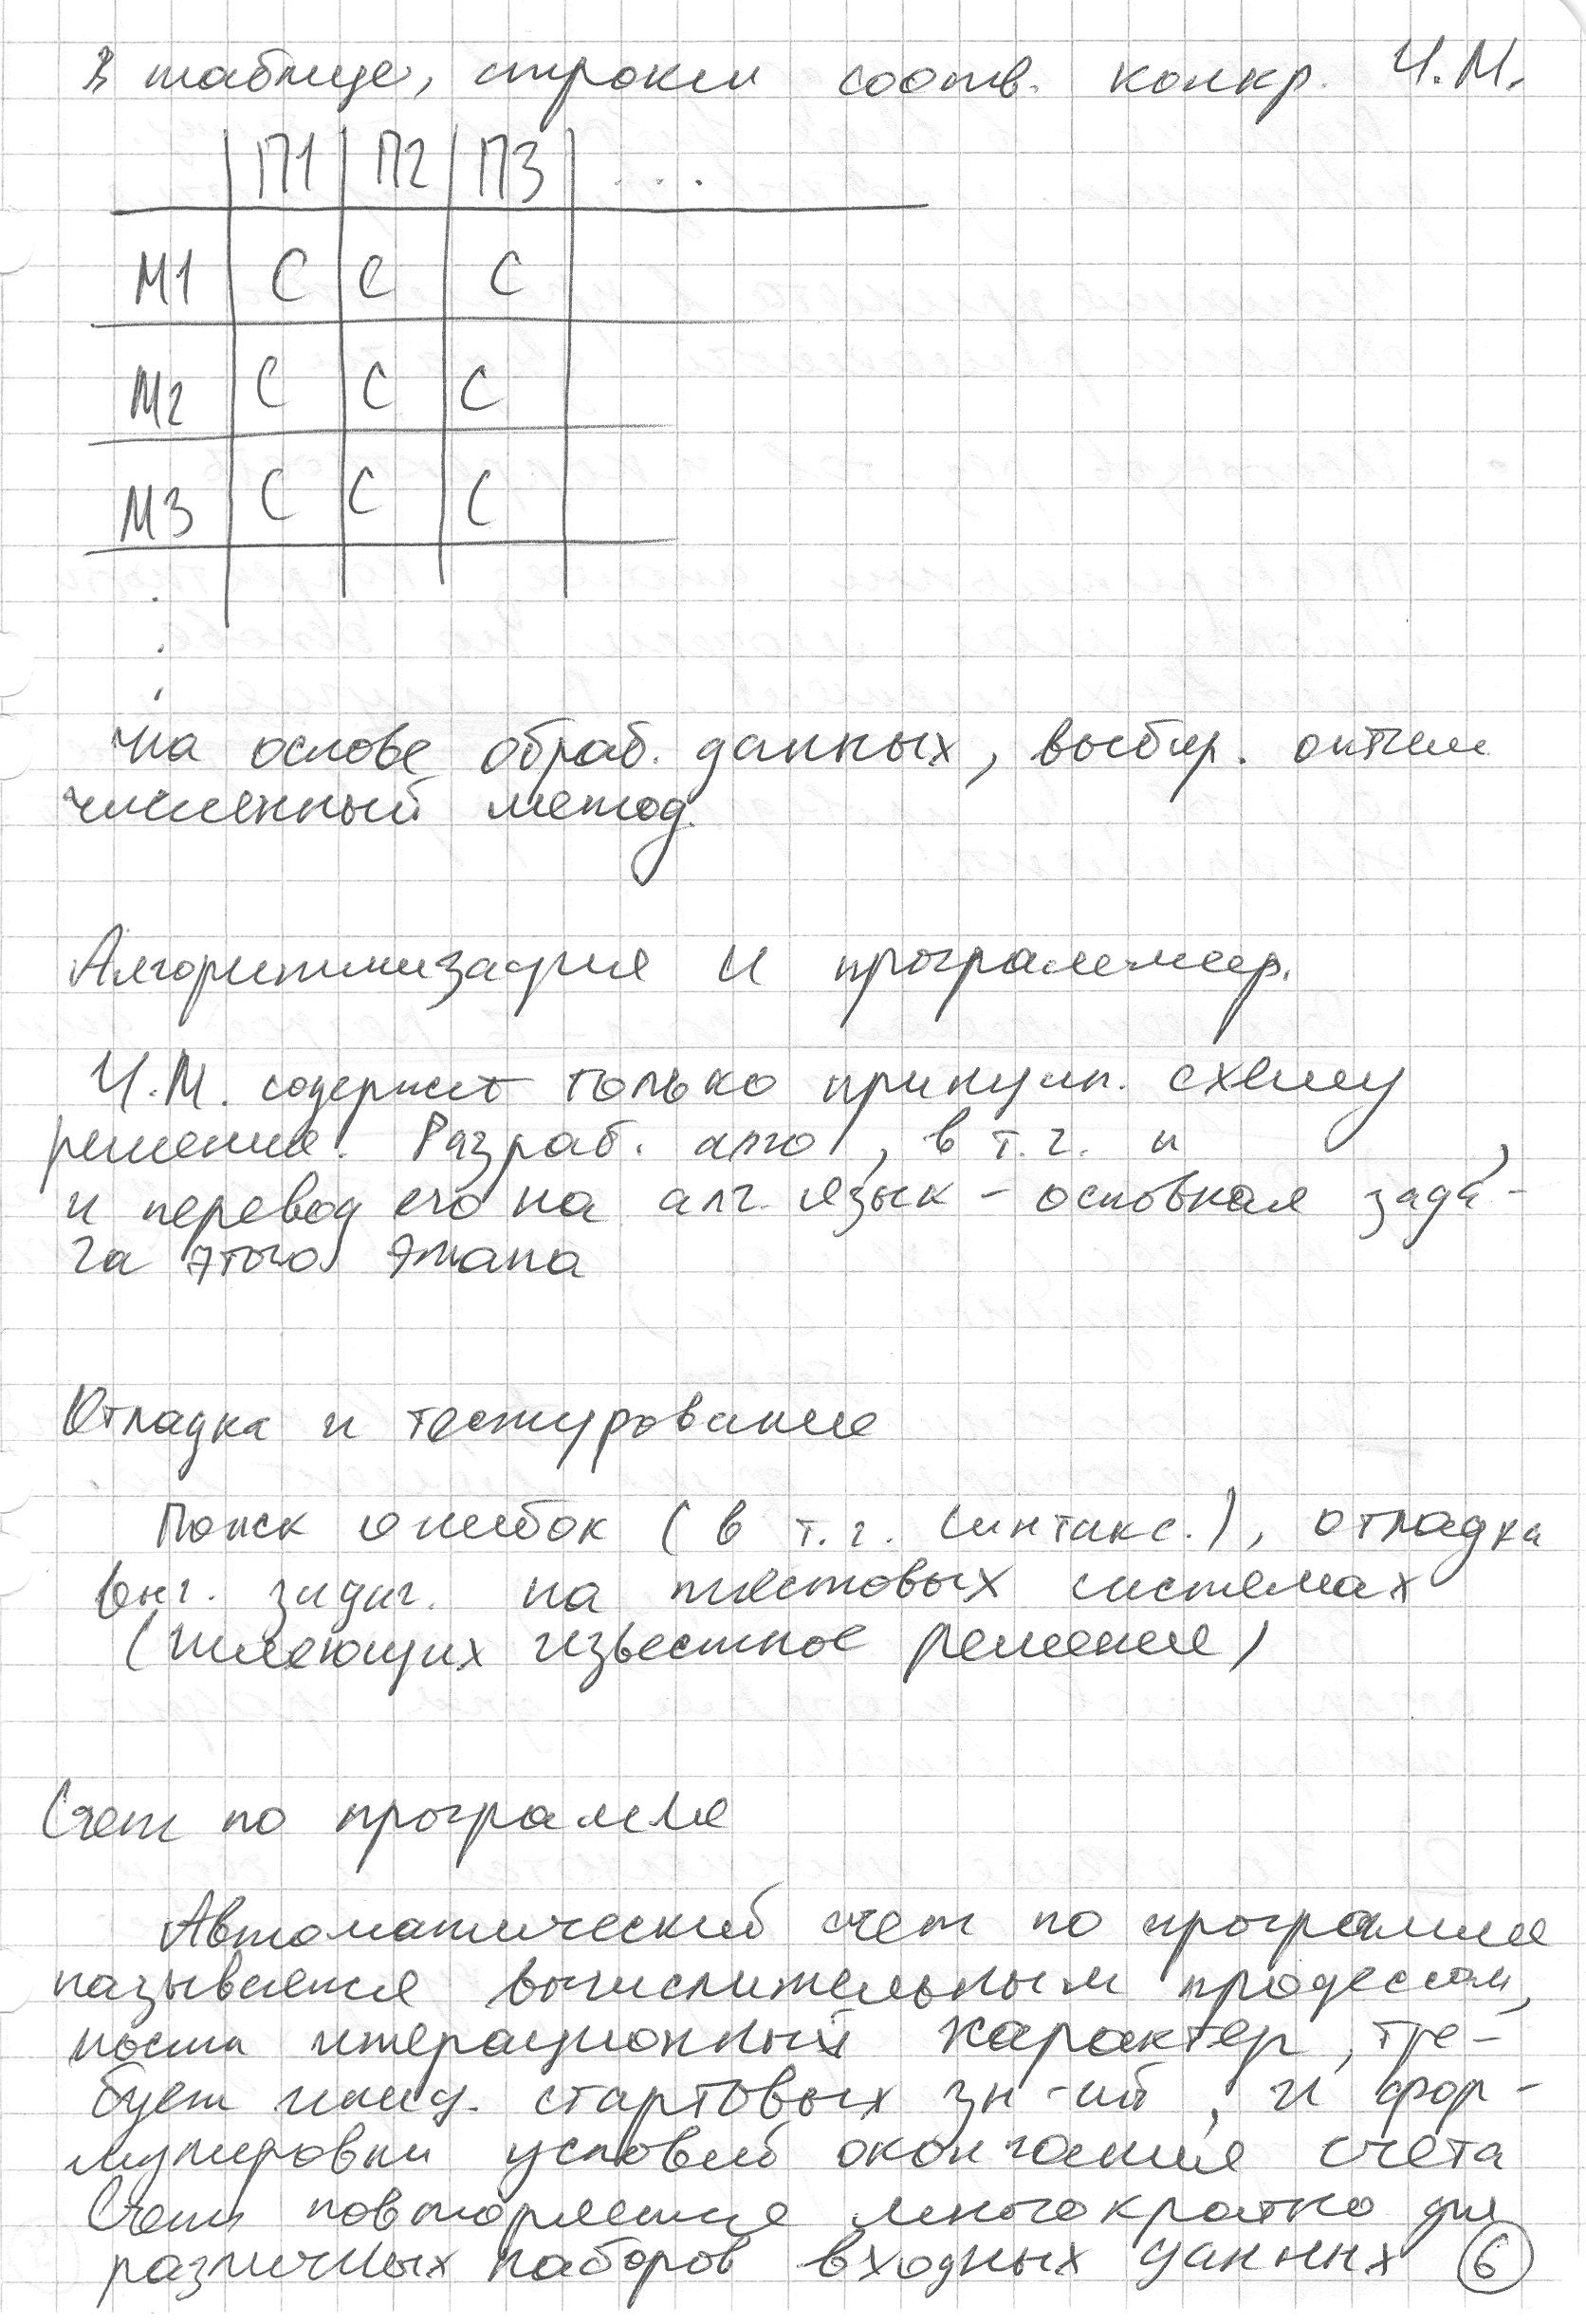 В таблице, строки соотв. конкр. Ч.М.
П1 П2 П3 ...
М1 С С С
М2 С С С
М3 С С С
на основе обраб. данных, выбир. оптим
численный метод.
Алгоритмизация и программир.
Ч.М. содержит только принцип. схему
решения. Разраб. алго , в т.ч. и ,
и перевод его на алг. язык - основная зада-
ча этого этапа
Отладка и тестирование
Поиск ошибок (в т.ч. синтакс.), отладка
на тестовых системах
(имеющих известное решение)
Счет по программе
Автоматический счет по программе
называется вычислительным процессом,
носит итерационный характер, тре-
бует стартовых зн-ий, и фор-
мулировки условий окончания счета
Счет повторяется многократно для
различных наборов входных данных 6